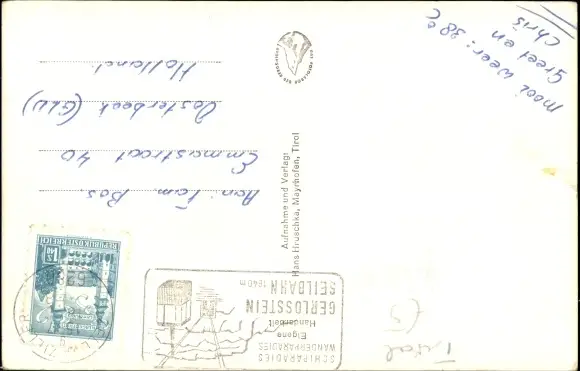 mooi weer: 38°C
Greet en
Chris
Aan: Fam. Bos.
Emmastraat 40
Oosterbeek (GLD)
Holland.
Aufnahme und Verlag:
Hans Hruschka, Mayrhofen, Tirol
REPUBLIK ÖSTERREICH
S 1.40
SCHIPARADIES
WANDERPARADIES
Eigene
Handarbeit
GERLOSSTEIN
SEILBAHN 1640m
Tirol